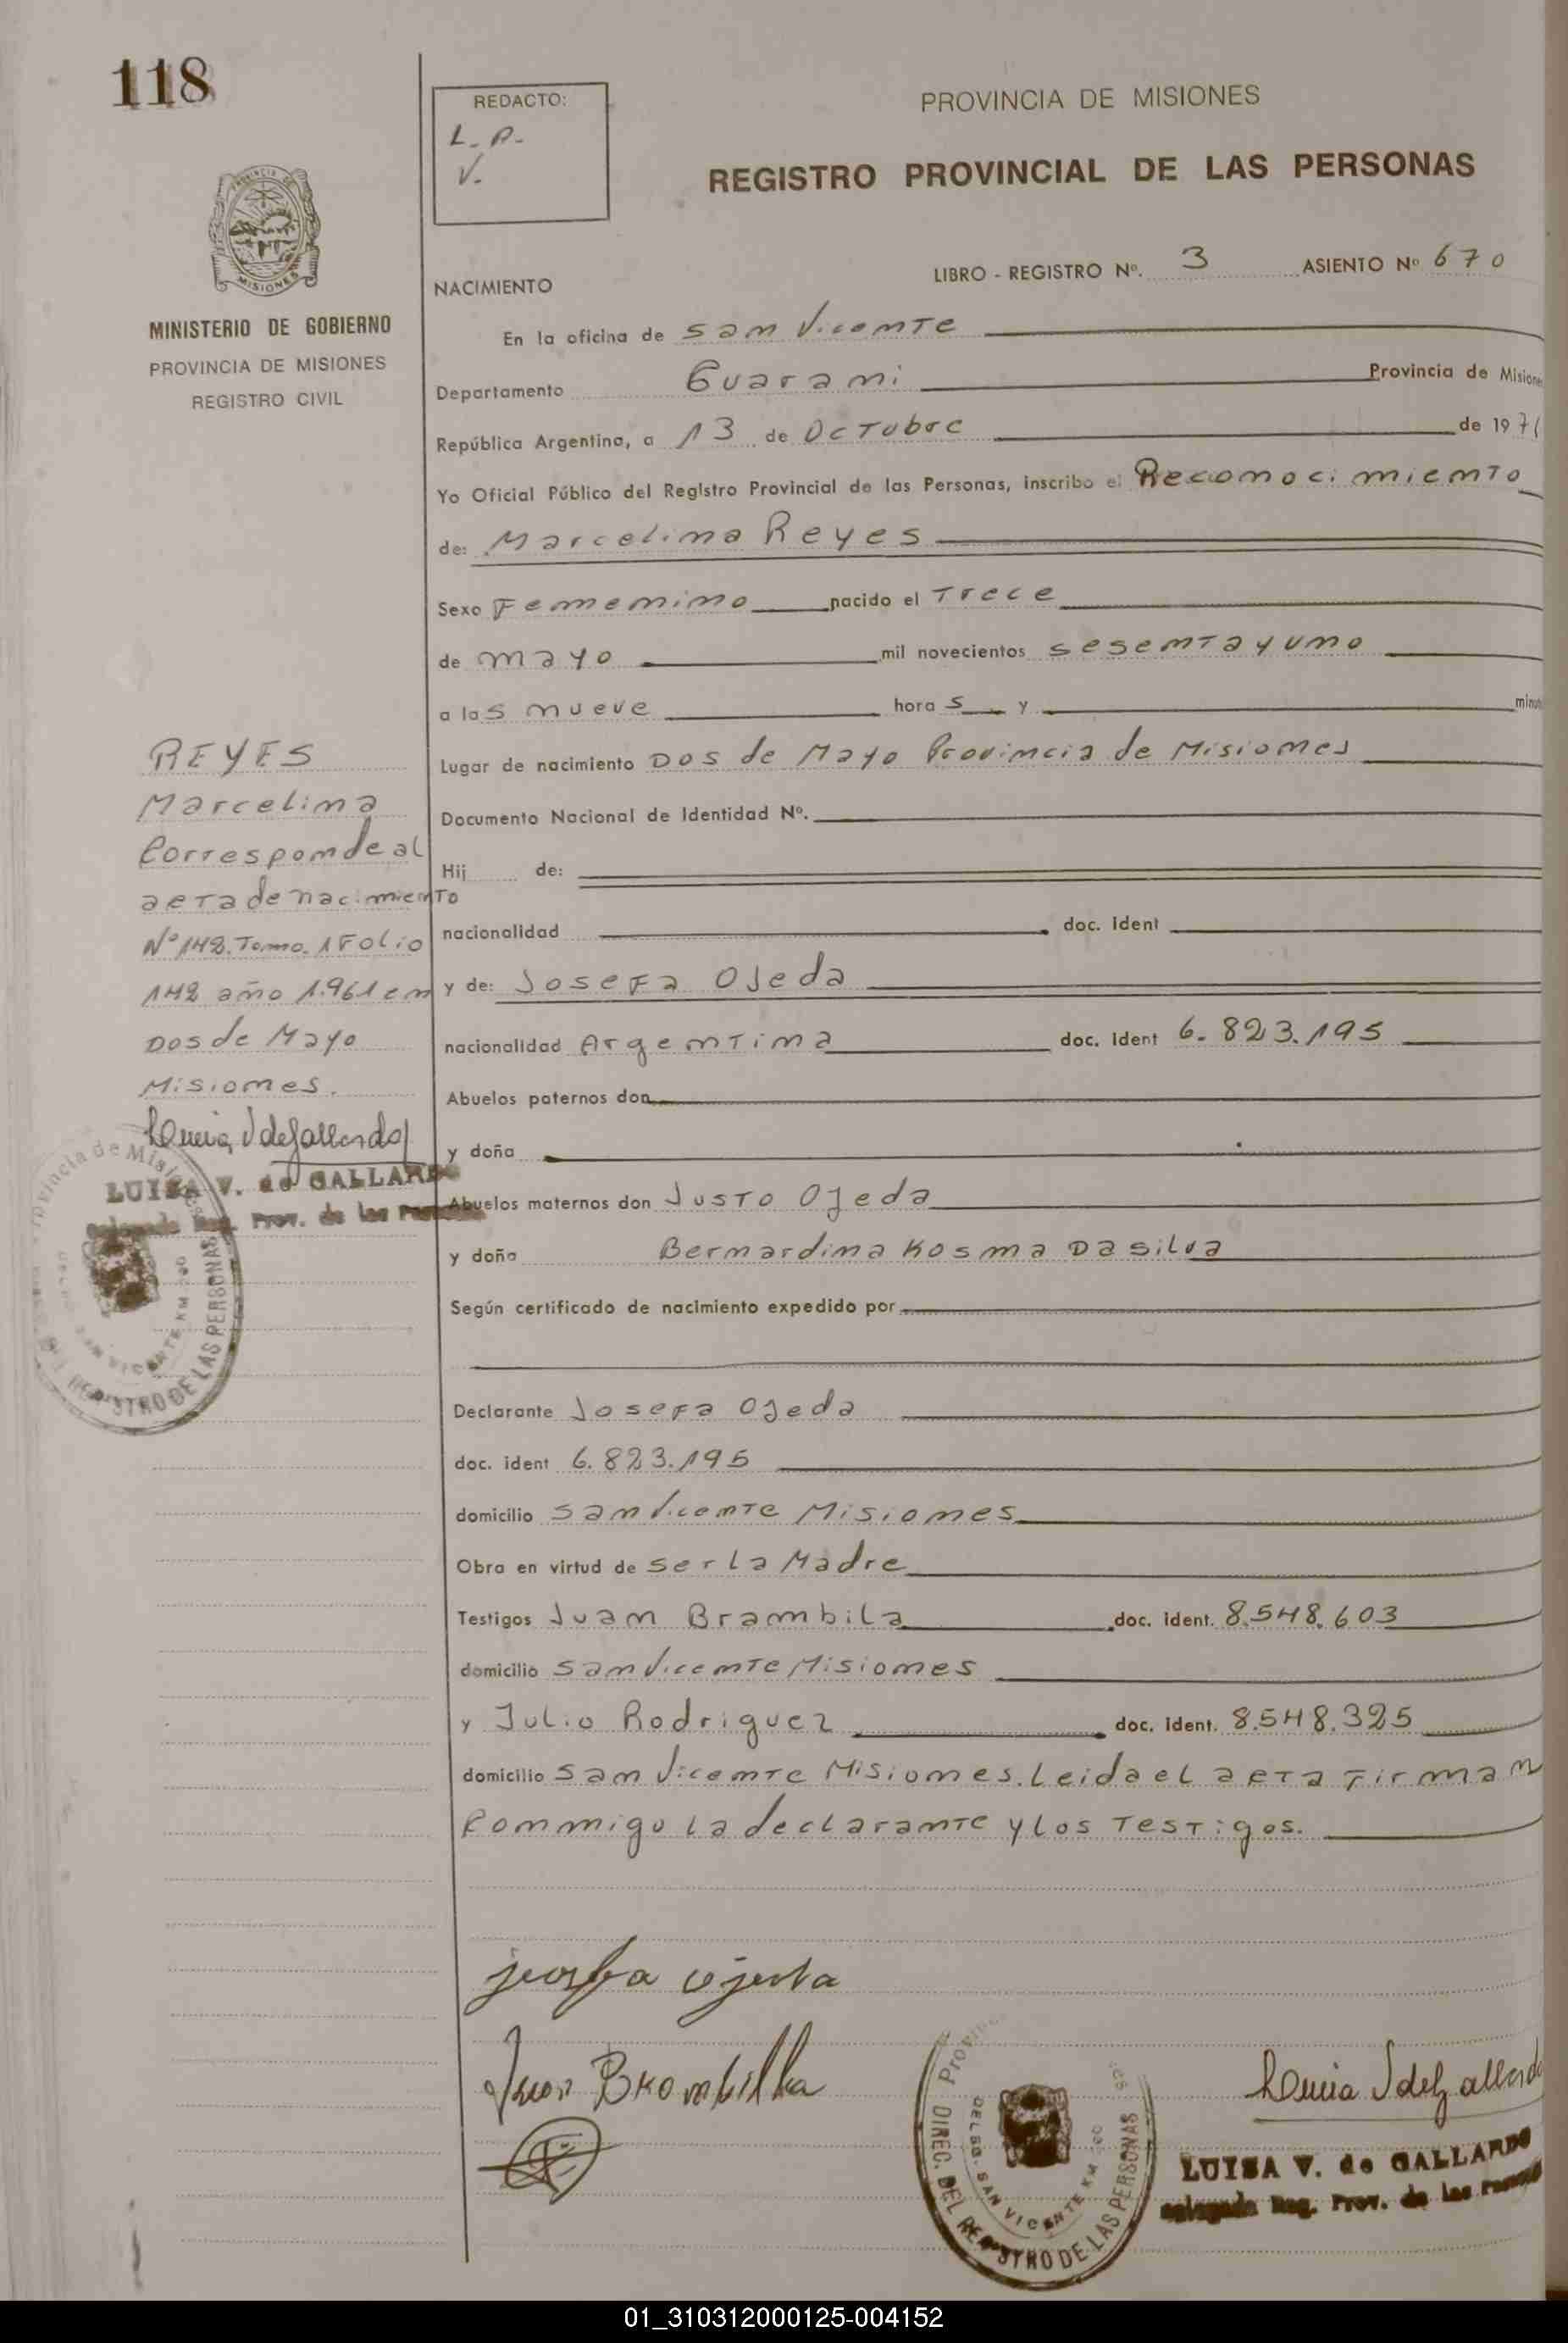 118
REDACTO:
L. A.
V.
PROVINCIA DE MISIONES
REGISTRO PROVINCIAL DE LAS PERSONAS
MISIONES
MINISTERIO DE GOBIERNO
PROVINCIA DE MISIONES
REGISTRO CIVIL
LIBRO - REGISTRO Nº. 3 ASIENTO Nº 670
NACIMIENTO
En la oficina de San Vicente
Departamento Guarani Provincia de Misione
República Argentina, a 13 de Octubre de 1971
Yo Oficial Público del Registro Provincial de las Personas, inscribo el Reconocimiento
de: Marcelina Reyes
Sexo Femenino nacido el Trece
de mayo mil novecientos sesenta y uno
a las nueve hora s y minu
Lugar de nacimiento Dos de Mayo Provincia de Misiones
Documento Nacional de Identidad Nº.
Hij de:
nacionalidad doc. ident
y de: Josefa Ojeda
nacionalidad Argentina doc. ident 6.823.195
Abuelos paternos don
y doña
Abuelos maternos don Justo Ojeda
y doña Bernardina Kosma Da Silva
Según certificado de nacimiento expedido por
Declarante Josefa Ojeda
doc. ident 6.823.195
domicilio San Vicente Misiones
Obra en virtud de ser la Madre
Testigos Juan Brambila doc. ident. 8.548.603
domicilio San Vicente Misiones
y Julio Rodriguez doc. ident. 8.548.325
domicilio San Vicente Misiones. Leida el acta firman
conmigo la declarante y los testigos.
REYES
Marcelina
Corresponde al
acta de nacimiento
Nº 142. Tomo. 1 Folio
142 año 1.961 en
Dos de Mayo
Misiones.
LUISA V. de GALLARDO
Delegada Reg. Prov. de las Personas
REGISTRO DE LAS PERSONAS
SAN VICENTE KM
josefa ojeda
Juan Brambilla
DIREC. DEL REGISTRO DE LAS PERSONAS
SAN VICENTE KM
LUISA V. de GALLARDO
Delegada Reg. Prov. de las Personas
01_310312000125-004152